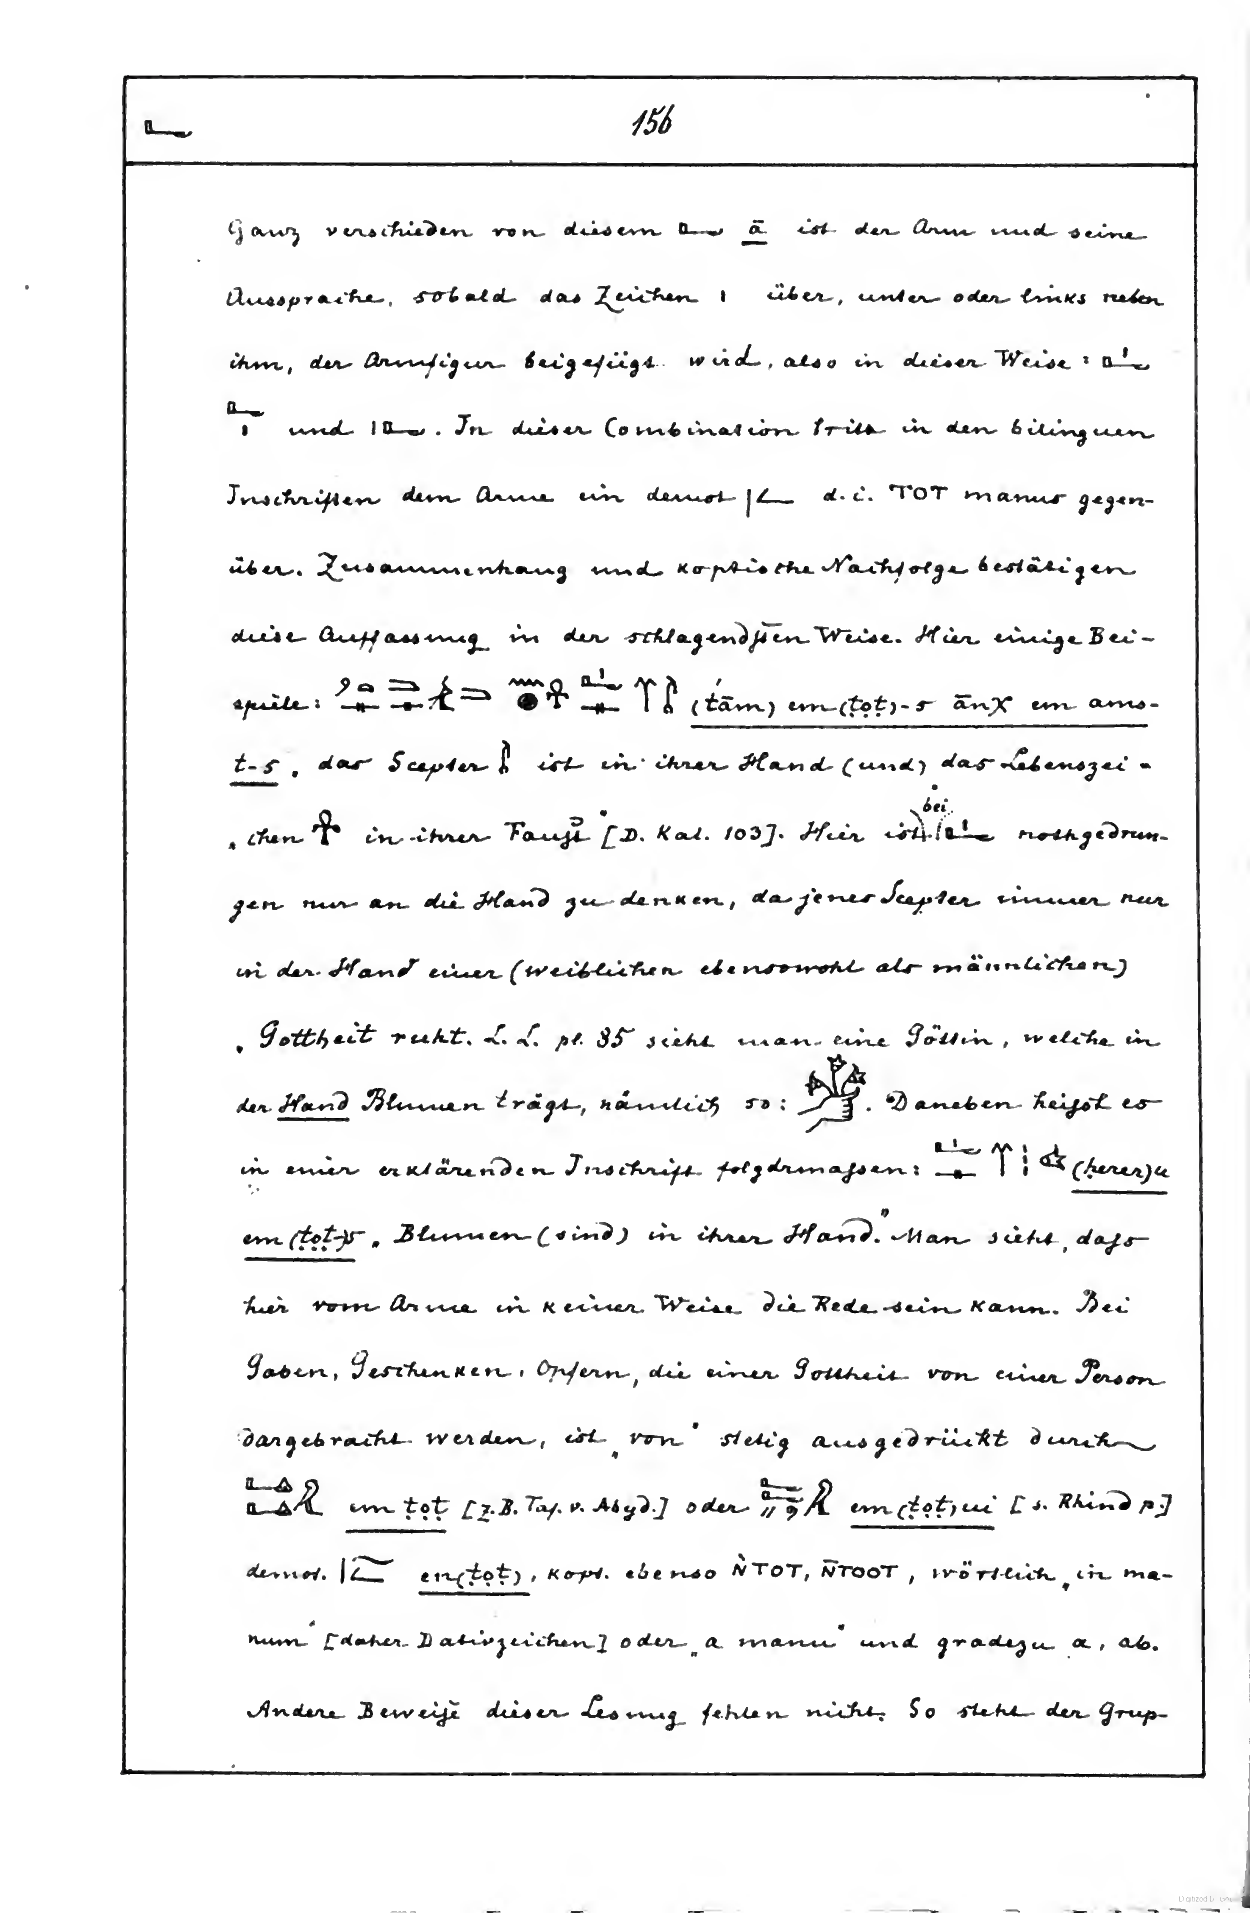 𓂝 156
Ganz verschieden von diesem 𓂝 ā ist der Arm und seine
Aussprache, sobald das Zeichen 𓏤 über, unter oder links neben
ihm, der Armfigur beigefügt wird, also in dieser Weise: 𓂝𓏤
𓂝𓏤 und 𓏤𓂝. In dieser Combination tritt in den bilinguen
Inschriften dem Arme ein demot. d. i. ⲦⲞⲦ manus gegen-
über. Zusammenhang und koptische Nachfolge bestätigen
diese Auffassung in der schlagendsten Weise. Hier einige Bei-
spiele: (tám) em (ṭoṭ)-s ānχ em ams-
t-s „das Scepter 𓌀 ist in ihrer Hand (und) das Lebenszei-
„chen 𓋹 in ihrer Faust“ [D. Kal. 103]. Hier ist bei 𓂝𓏤 nothgedrun-
gen nur an die Hand zu denken, da jenes Scepter immer nur
in der Hand einer (weiblichen ebensowohl als männlichen)
„Gottheit ruht. L. L. pl. 35 sieht man eine Göttin, welche in
der Hand Blumen trägt, nämlich so: . Daneben heißt es
in einer erklärenden Inschrift folgdrmaßen: (ḥerer)u
em (ṭoṭ)-s „Blumen (sind) in ihrer Hand.“ Man sieht, daß
hier vom Arme in keiner Weise die Rede sein kann. Bei
Gaben, Geschenken, Opfern, die einer Gottheit von einer Person
dargebracht werden, ist „von“ stetig ausgedrückt durch
em ṭoṭ [z. B. Taf. v. Abyd.] oder em (ṭoṭ)ui [s. Rhind p.]
demot. en(ṭoṭ), kopt. ebenso ⲚⲦⲞⲦ, ⲚⲦⲞⲞⲦ, wörtlich „in ma-
num“ [daher Dativzeichen] oder „a manu“ und gradezu a, ab.
Andere Beweise dieser Lesung fehlen nicht. So steht der Grup-